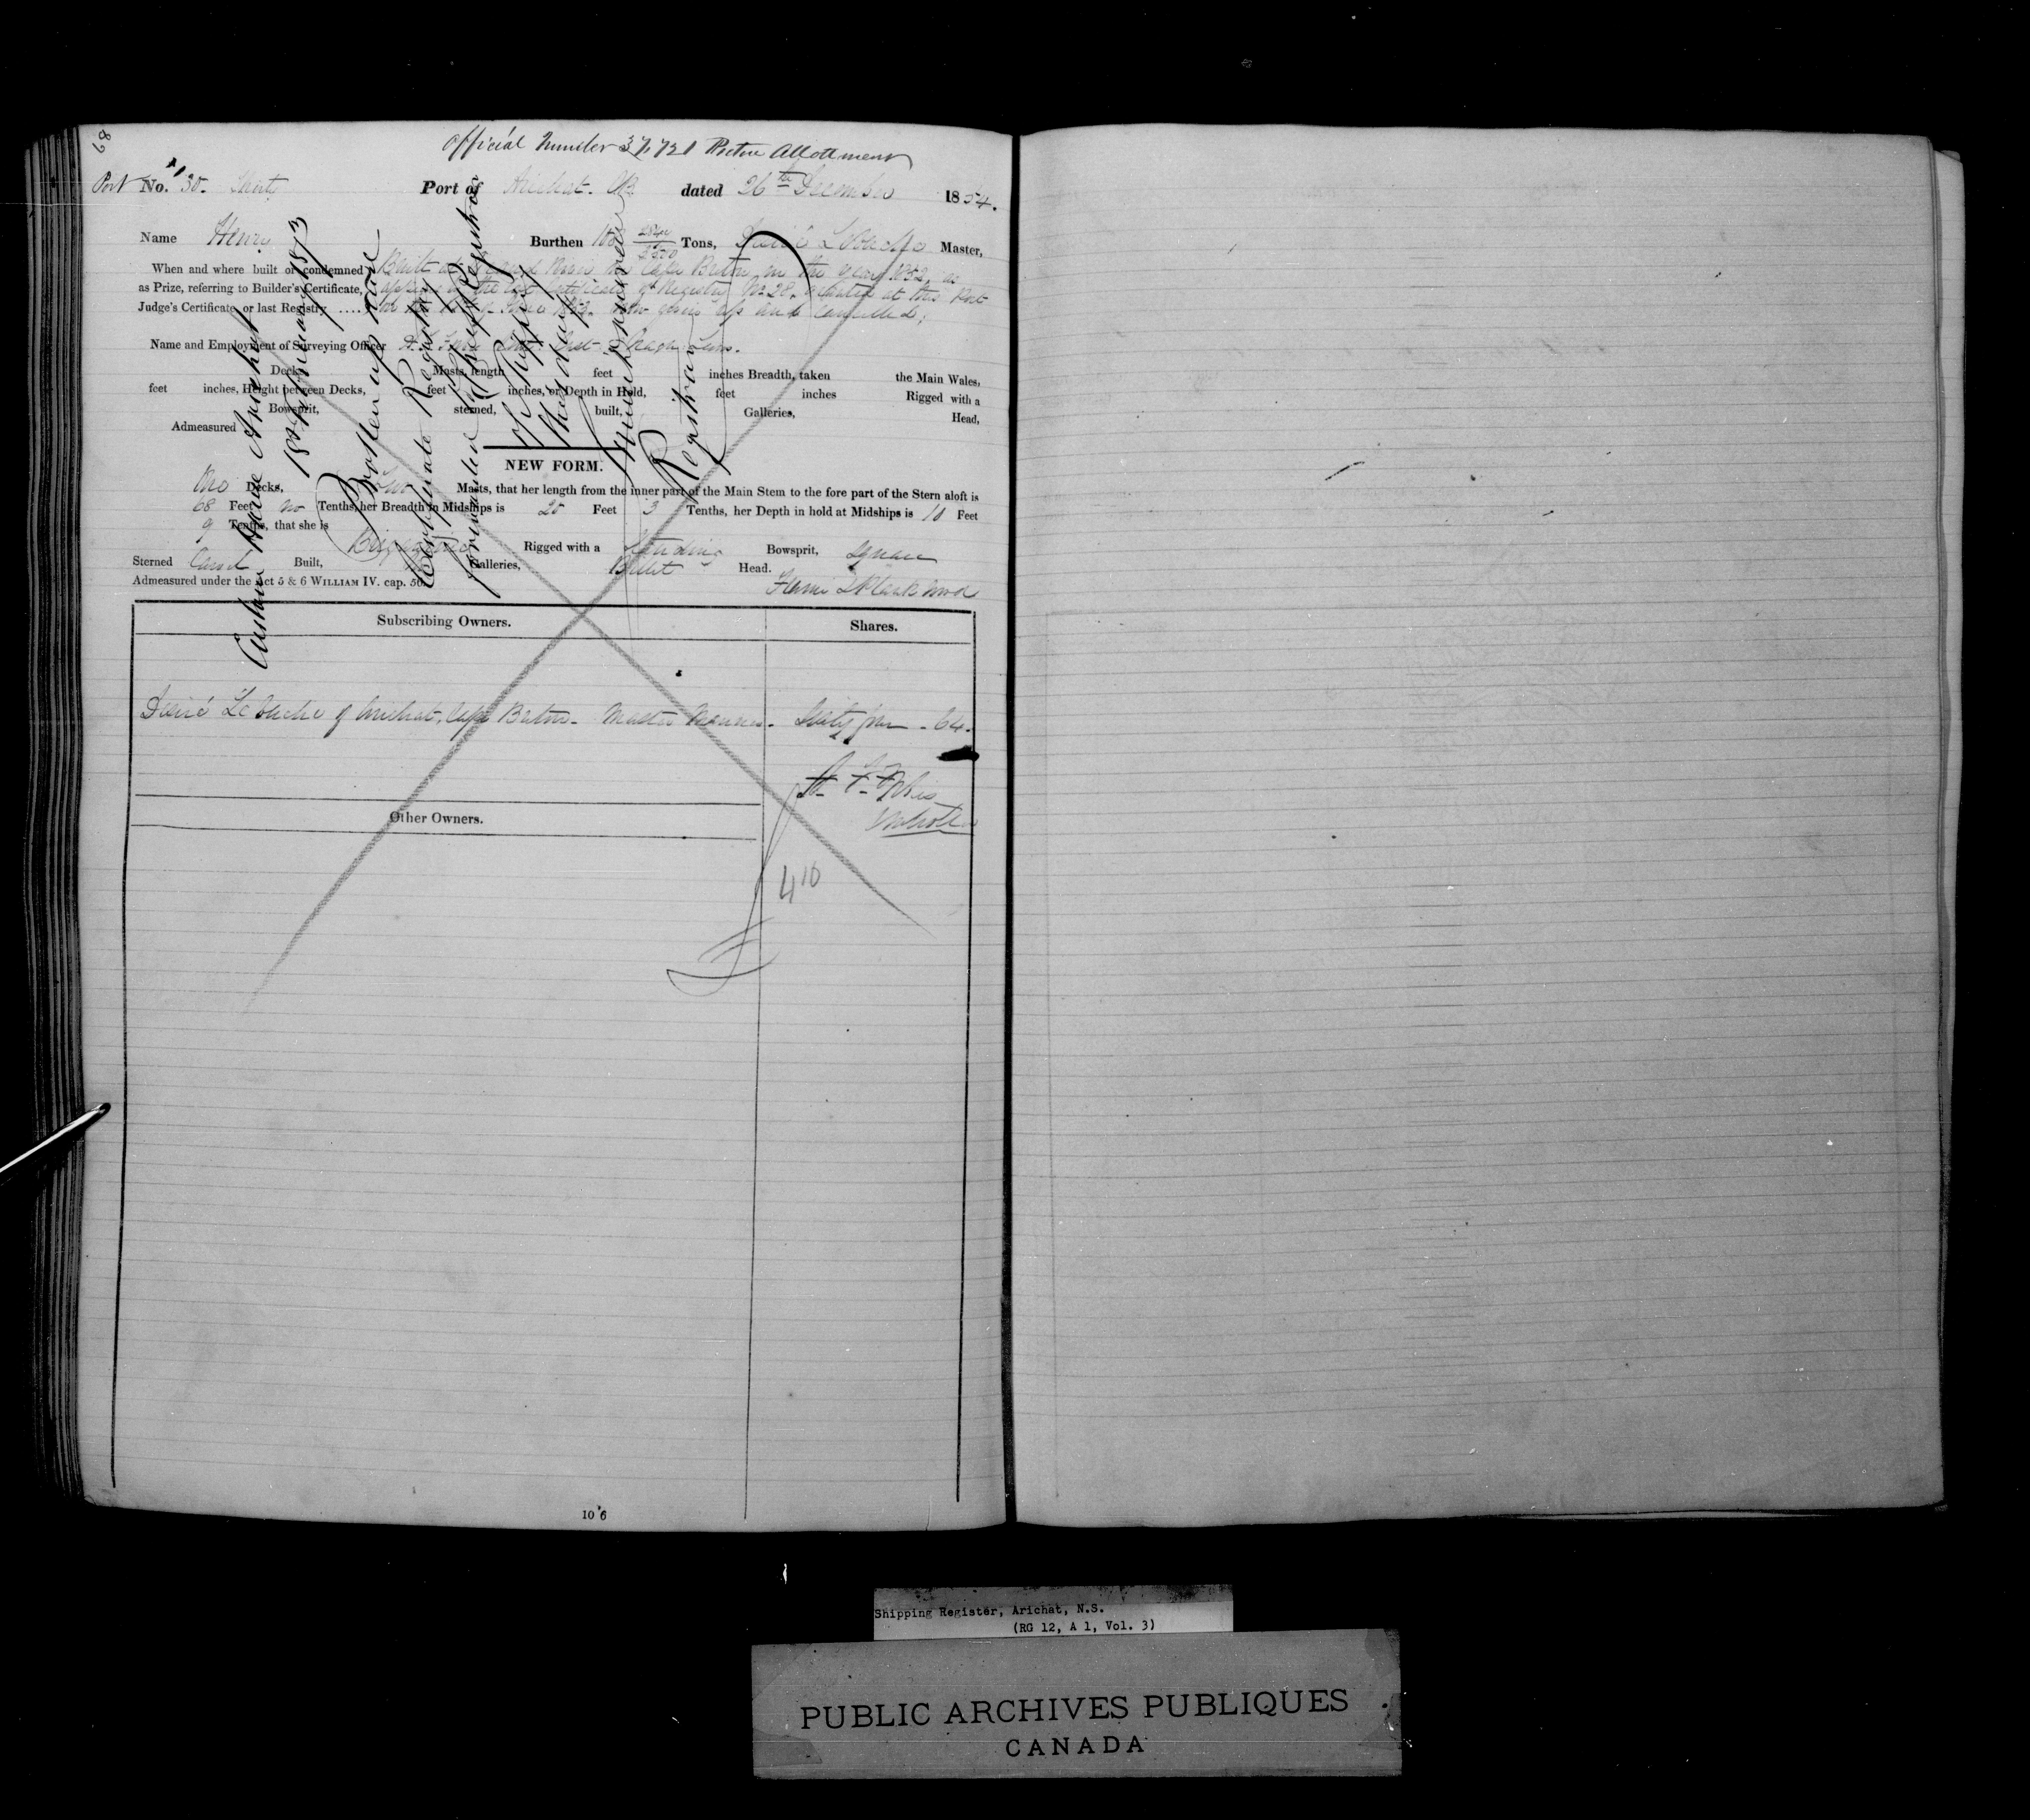 89
Official Number 37,721 Pictou Allotment
Port No. 30. Thirty Port of Arichat. CB dated 26th December 1854.
Name Henry Burthen 2840/3500 Tons, Desiré LeBlache Master,
When and where built or condemned Built at Grand River in Cape Breton in the year 1852, as
as Prize, referring to Builder's Certificate, appears by the last Certificate of Registry No 28. granted at this Port
Judge's Certificate or last Registry .... now given up and Cancelled;
Name and Employment of Surveying Officer
Decks, Masts, length feet inches Breadth, taken the Main Wales,
feet inches, Height between Decks, feet inches, or Depth in Hold, feet inches Rigged with a
Bowsprit, sterned, built, Galleries, Head,
Admeasured
NEW FORM.
One Decks, Two Masts, that her length from the inner part of the Main Stem to the fore part of the Stern aloft is
68 Feet no Tenths, her Breadth in Midships is 20 Feet 3 Tenths, her Depth in hold at Midships is 10 Feet
9 Tenths, that she is Brigantine Rigged with a Standing Bowsprit, Square
Sterned Carvel Built, No Galleries, Billet Head.
Admeasured under the Act 5 & 6 WILLIAM IV. cap. 56.
Custom House Arichat
18th January 1873
Broken up and
Certificate Registry
forwarded Chief Registrar
of Shipping
Registrar
Subscribing Owners. Shares.
Desiré LeBlache of Arichat, Cape Breton - Master Mariner. Sixty four - 64.
Other Owners.
410
10 6
Shipping Register, Arichat, N.S.
(RG 12, A 1, Vol. 3)
PUBLIC ARCHIVES PUBLIQUES
CANADA